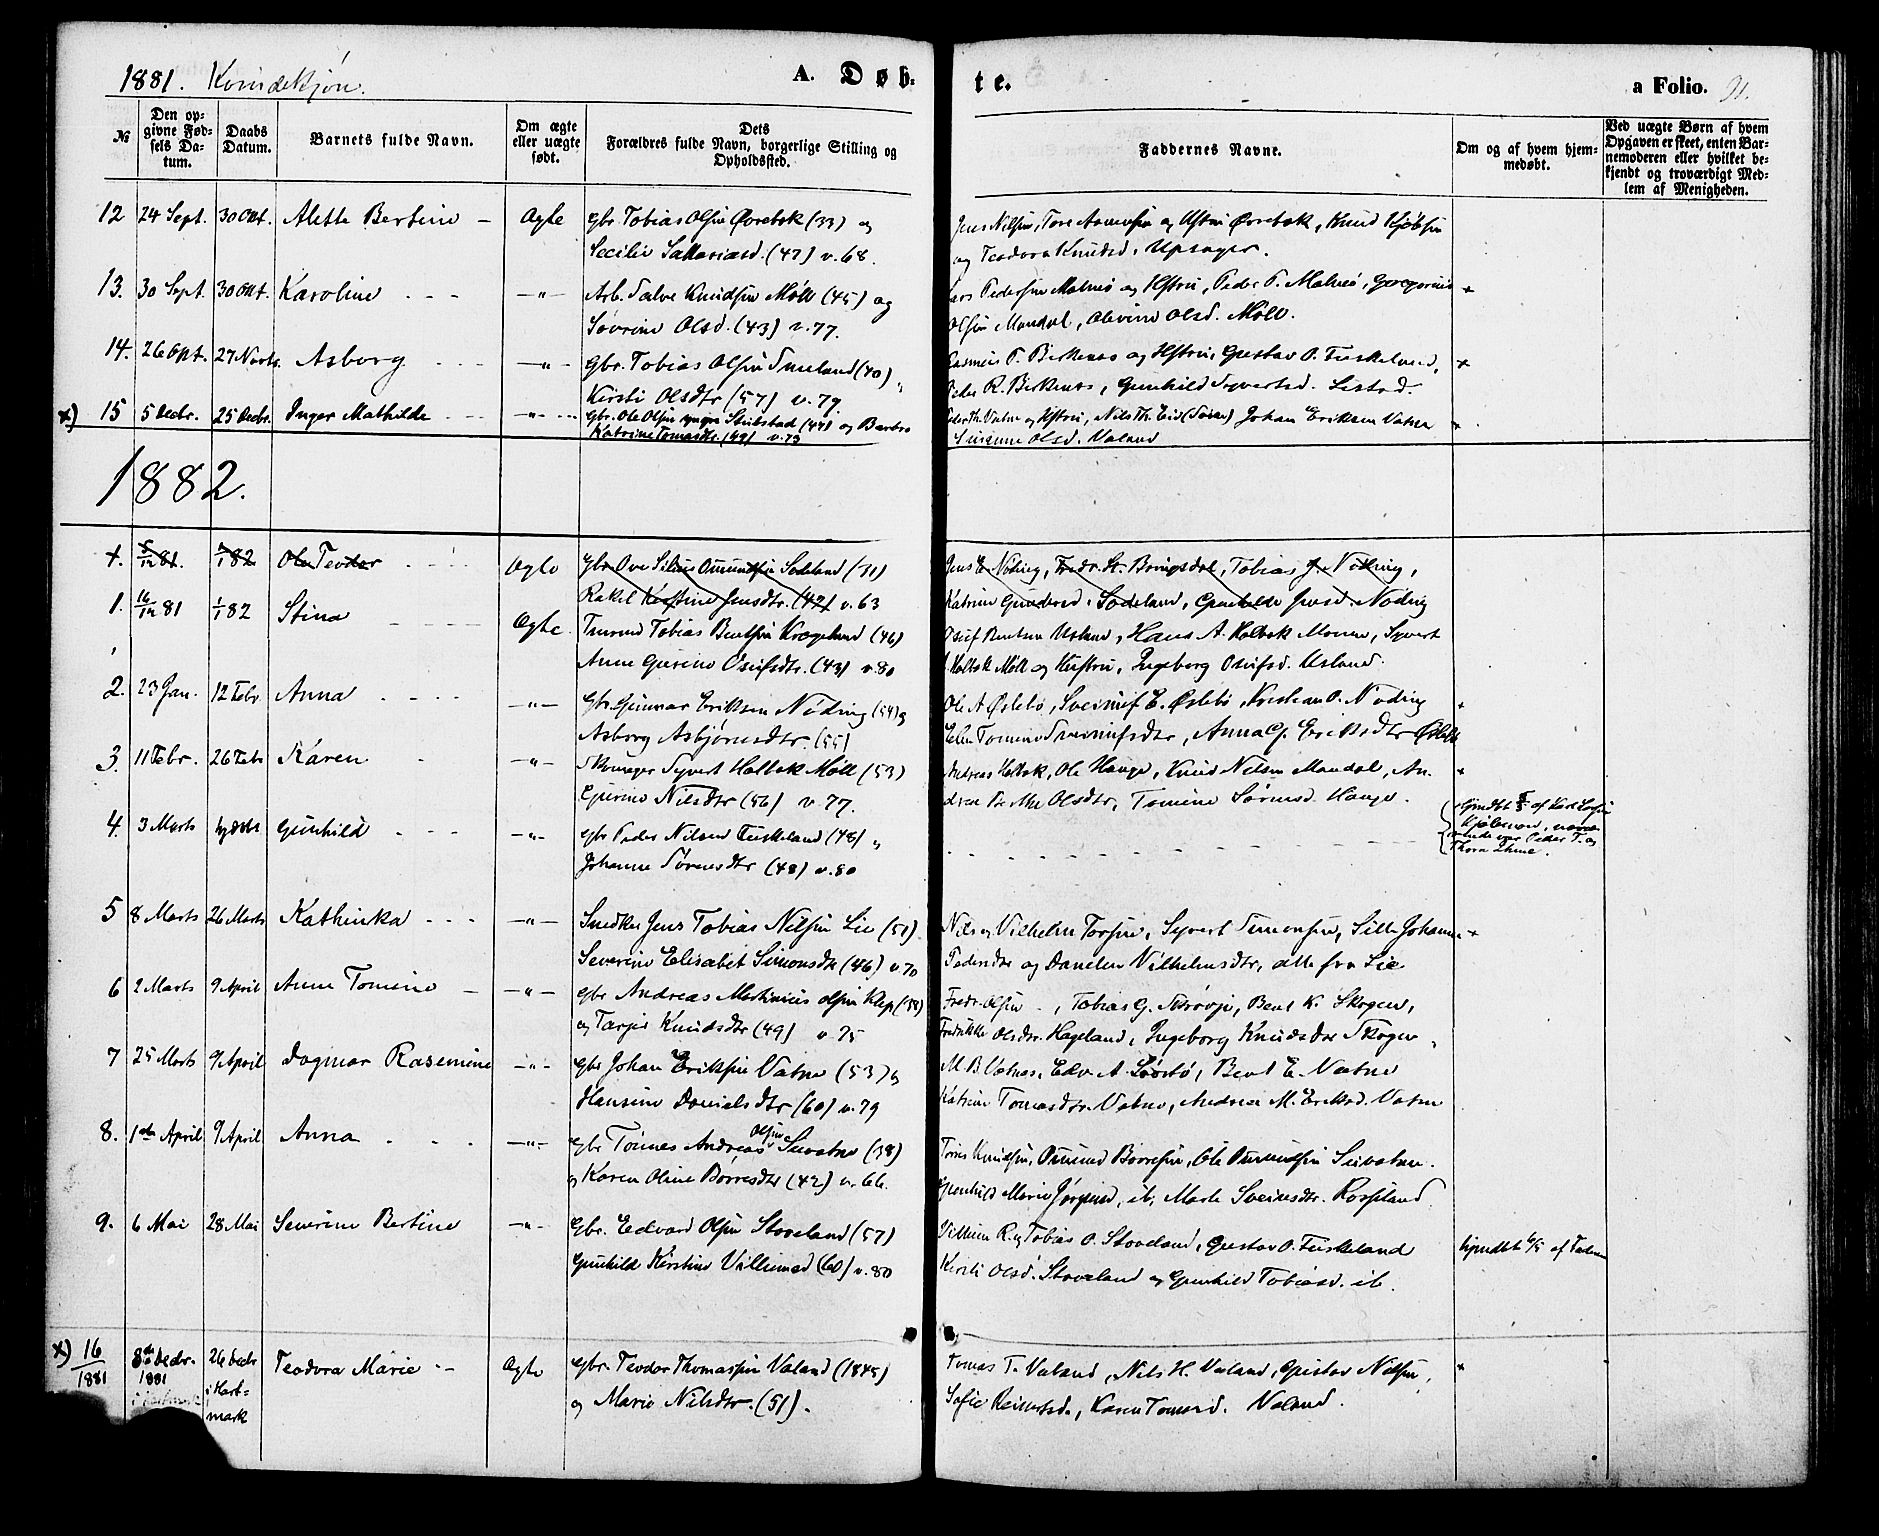 1881. Kvindekjøn.
A. Døb- te.
a Folio. 91.
№
Den opgivne Fødsels Datum.
Daabs Datum.
Barnets fulde Navn.
Om ægte eller uægte født.
Dets Forældres fulde Navn, borgerlige Stilling og Opholdssted.
Faddernes Navne.
Om og af hvem hjemmedøbt.
Ved uægte Børn af hvem Opgaven er skeet, enten Barnemoderen eller hvilket bekjendt og troværdigt Medlem af Menigheden.
12 24 Sept. 30 Okt. Alette Bertine - Ægte Gbr. Tobias Olsen Øvrebøk (33) og
Secilie Sakariasd. (47) v. 68.
og Teodora Knudsd. Upsager.
13. 30 Sept. 30 Okt. Karoline - - - -"- Arb. Salve Knudsen Møll (45) og
Sövrine Olsd. (43) v. 77.
Lars Pedersen Malmö og Hstru, Peder P. Malmö, Gregorius +
Olsen Mandal, Olevine Olsd. Møll.
14. 26 Okt. 27 Novbr. Asborg - - - -"- Gbr. Tobias Olsen Smeland (40) "
Kirsti Olsdtr (57) v. 79.
Rasmus P. Birkenes og Hstru, Gustav O. Fuskeland, +
Peder R. Birkenes, Gunhild Syvertsd. Listad.
x) 15 5 Decbr. 25 Decbr. Inger Mathilde - - - -"- Gbr. Ole Olsen yngre Stubstad (44) og Barbro
Katrine Tomasdtr (49) v. 73
Peder Th. Vatne og Hstru, Nils Th. Eid Johan Eriksen Vatne +
Susanne Olsd. Valand
1882.
+. 5/12 81. 1/1 82 Ole Teodor - - - Ægte Gbr. Ove Silius Omundsen Sodeland (31)
Rakel Kirstine Jensdtr. (42) v. 63
Jens E. Nöding, Fredr. St. Bringsdal, Tobias J. Nöding,
Katrine Gundersd. Sodeland, Gunhilde Jensd. Nöding
1. 16/12 81 1/1 82 Stina - - - - Ægte Tobias Bentsen Kragelund (46)
Anne Gurine Osufsdtr. (43) v. 80
Osuf Bentsen Usland, Hans A. Holbæk Monen, Syvert
Holbæk Møll og Hustru, Ingeborg Osufsd. Usland.
2. 23 Jan. 12 Febr Anna - - - -"- Gbr. Gunnar Eriksen Nöding (54) og
Asborg Asbjörnsdtr. (55)
Ole A Øslebö, Sveinuf E. Øslebö, Kristian O. Nöding +
Elen Tomine Sveinufsdtr, Anna G. Eriksdtr Øslebö
3. 11 Febr. 26 Febr Karen - -"- Skomager Syvert Holbæk Møll (53)
Gurine Nilsdtr (56) v. 77.
Andreas Holbæk, Ole Hauge, Knud Nilsen Mandal, An- +
drea Olsdtr, Tomine Sörensd. Hauge.
4. 3 Marts hjdøbt Gunhild - - - -"- Gbr Peder Nilsen Fuskeland (48) "
Johanne Sörensdtr (48) v. 80
5 8 Marts 26 Marts Kathinka - - - -"- Snedker Jens Tobias Nilsen Lie (51)
Severine Elisabet Simonsdtr (46) v 70
Nils og Vilhelm Torsen, Syvert Simonsen, Sille Johanne +
Pedersdtr og Danelen Vilhelmsdtr, alle fra Lie
6 2 Marts 9 April Anne Tomine - -"- Gbr Andreas Martinius Olsen Klep
og Tarjer Knudsdtr (49) v 75
Fredr. Olsen -, Tobias G. Skrövje, Bent K. Skogen,
Fredrikke Olsdtr. Hageland, Ingeborg Knudsdtr Skogen,
7 25 Marts 9 April Dagmar Rasemine -"- Gbr Johan Eriksen Vatne (53) og
Hansine Danielsdtr (60) v. 79
M. B. Vatnes, Edv. A. Løvstö, Bent E. Vatne
Katrine Tomasdtr. Vatne, Andrea M. Eriksd. Vatne
8. 1ste April 9 April Anna - - - -"- Gbr Tönnes Andreas Olsen Suvatne (38)
og Karen Oline Börresdtr (42) v. 66.
Tönnes Knudsen, Omund Borresen, Ole Omundsen Suvatne.
Gunhild Marie Jörgensd. ib, Marte Sveinsdtr. Rosseland
9. 6 Mai 28 Mai Severine Bertine -"- Gbr. Edvard Olsen Stoveland (57)
Gunhilde Kirstine Villumsd (60) v. 80
Villum R. og Tobias O. Stoveland, Gustav O. Fuskeland
Kirsti Olsd. Stoveland og Gunhild Tobiasd. ib.
hjmdbt 6/5 af Faderen
x) 16/1881 8de Decbr. 1881 26 Decbr i Hart-
mark
Teodora Marie - - Ægte Gbr. Teodor Thomassen Valand (1845)
og Marie Nilsdtr. (51).
Tomas T. Valand, Nils H. Valand, Gustav Nilsen, +
Sofie Reinertsd., Karen Tomasd. Valand.